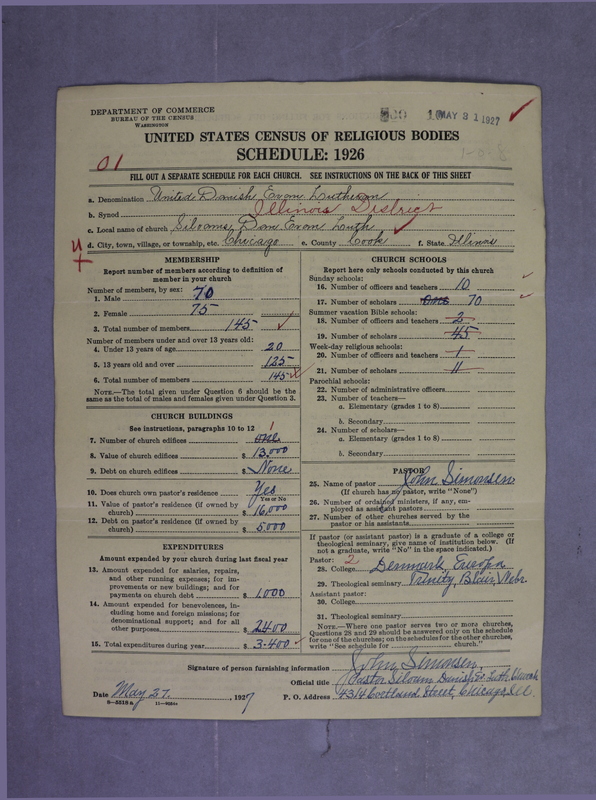 DEPARTMENT OF COMMERCE
BUREAU OF THE CENSUS
WASHINGTON
MAY 31 1927
UNITED STATES CENSUS OF RELIGIOUS BODIES
SCHEDULE: 1926
01
FILL OUT A SEPARATE SCHEDULE FOR EACH CHURCH. SEE INSTRUCTIONS ON THE BACK OF THIS SHEET
a. Denomination United Danish Evan. Lutheran
b. Synod Illinois District
c. Local name of church Siloams Dan Evan Luth
d. City, town, village, or township, etc. Chicago e. County Cook f. State Illinois
MEMBERSHIP
Report number of members according to definition of
member in your church
Number of members, by sex:
1. Male 70
2. Female 75
3. Total number of members 145
Number of members under and over 13 years old:
4. Under 13 years of age 20
5. 13 years old and over 125
6. Total number of members 145
NOTE.—The total given under Question 6 should be the
same as the total of males and females given under Question 3.
CHURCH BUILDINGS
See instructions, paragraphs 10 to 12
7. Number of church edifices one 1
8. Value of church edifices $ 13.000
9. Debt on church edifices $ None
10. Does church own pastor's residence Yes
Yes or No
11. Value of pastor's residence (if owned by
church) $ 16,000
12. Debt on pastor's residence (if owned by
church) $ 5,000
EXPENDITURES
Amount expended by your church during last fiscal year
13. Amount expended for salaries, repairs,
and other running expenses; for im-
provements or new buildings; and for
payments on church debt $ 1,000
14. Amount expended for benevolences, in-
cluding home and foreign missions; for
denominational support; and for all
other purposes $ 2400
15. Total expenditures during year $ 3.400
CHURCH SCHOOLS
Report here only schools conducted by this church
Sunday schools:
16. Number of officers and teachers 10
17. Number of scholars One 70
Summer vacation Bible schools:
18. Number of officers and teachers 2
19. Number of scholars 45
Week-day religious schools:
20. Number of officers and teachers 1
21. Number of scholars 11
Parochial schools:
22. Number of administrative officers
23. Number of teachers—
a. Elementary (grades 1 to 8)
b. Secondary
24. Number of scholars—
a. Elementary (grades 1 to 8)
b. Secondary
PASTOR
25. Name of pastor John Simonsen
(If church has no pastor, write "None")
26. Number of ordained ministers, if any, em-
ployed as assistant pastors
27. Number of other churches served by the
pastor or his assistants
If pastor (or assistant pastor) is a graduate of a college or
theological seminary, give name of institution below. (If
not a graduate, write "No" in the space indicated.)
Pastor: 2
28. College Denmark Europa
29. Theological seminary Trinity, Blair, Nebr.
Assistant pastor:
30. College
31. Theological seminary
NOTE.—Where one pastor serves two or more churches,
Questions 28 and 29 should be answered only on the schedule
for one of the churches; on the schedules for the other churches,
write "See schedule for church."
Signature of person furnishing information John Simonsen,
Official title Pastor Siloam Danish Ev. Luth Church
Date May 27. , 1927 P. O. Address 4314 Cortland Street, Chicago, Ill.